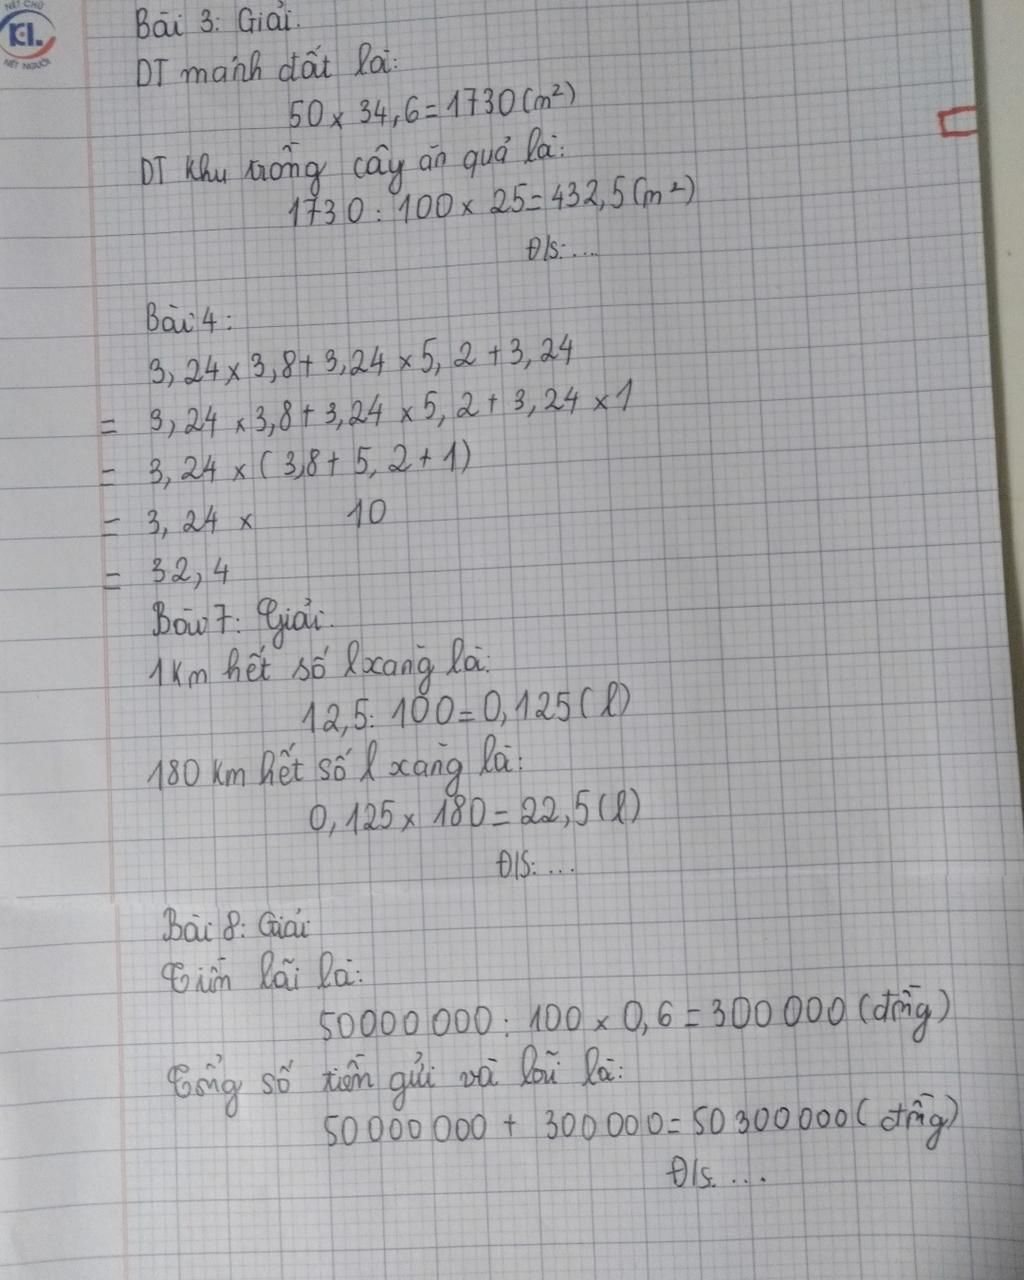 NÉT CHỮ
KL.
NẾT NGƯỜI
Bài 3: Giải.
DT mảnh đất là:
50 x 34,6 = 1730 (m²)
DT khu trồng cây ăn quả là:
1730 : 100 x 25 = 432,5 (m²)
Đ/s: ...
Bài 4:
3,24 x 3,8 + 3,24 x 5,2 + 3,24
= 3,24 x 3,8 + 3,24 x 5,2 + 3,24 x 1
= 3,24 x (3,8 + 5,2 + 1)
= 3,24 x 10
= 32,4
Bài 7: Giải.
1 Km hết số l xăng là:
12,5 : 100 = 0,125 (l)
180 km hết số l xăng là:
0,125 x 180 = 22,5 (l)
Đ/S: ...
Bài 8: Giải
Tiền lãi là:
50 000 000 : 100 x 0,6 = 300 000 (đồng)
Tổng số tiền gửi và lãi là:
50 000 000 + 300 000 = 50 300 000 (đồng)
Đ/s. ...